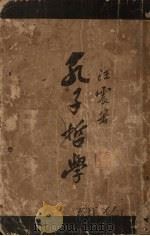 汪震著
孔子哲學